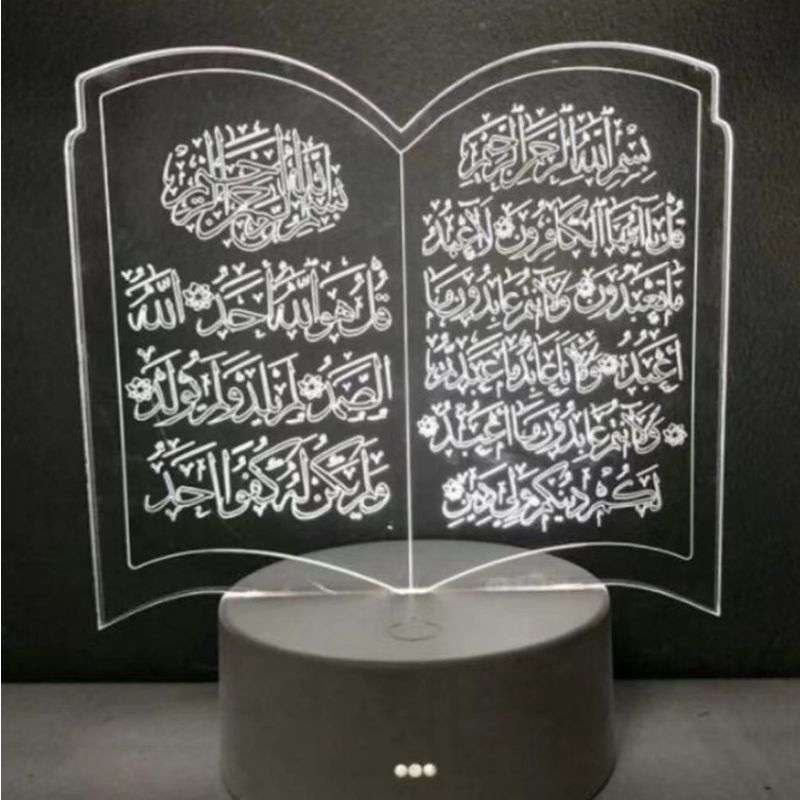 بِسْمِ اللَّهِ الرَّحْمَنِ الرَّحِيمِ
قُلْ يَا أَيُّهَا الْكَافِرُونَ لَا أَعْبُدُ
مَا تَعْبُدُونَ وَلَا أَنْتُمْ عَابِدُونَ مَا
أَعْبُدُ وَلَا أَنَا عَابِدٌ مَا عَبَدْتُمْ
وَلَا أَنْتُمْ عَابِدُونَ مَا أَعْبُدُ
لَكُمْ دِينُكُمْ وَلِيَ دِينِ
بِسْمِ اللَّهِ الرَّحْمَنِ الرَّحِيمِ
قُلْ هُوَ اللَّهُ أَحَدٌ اللَّهُ
الصَّمَدُ لَمْ يَلِدْ وَلَمْ يُولَدْ
وَلَمْ يَكُنْ لَهُ كُفُوًا أَحَدٌ